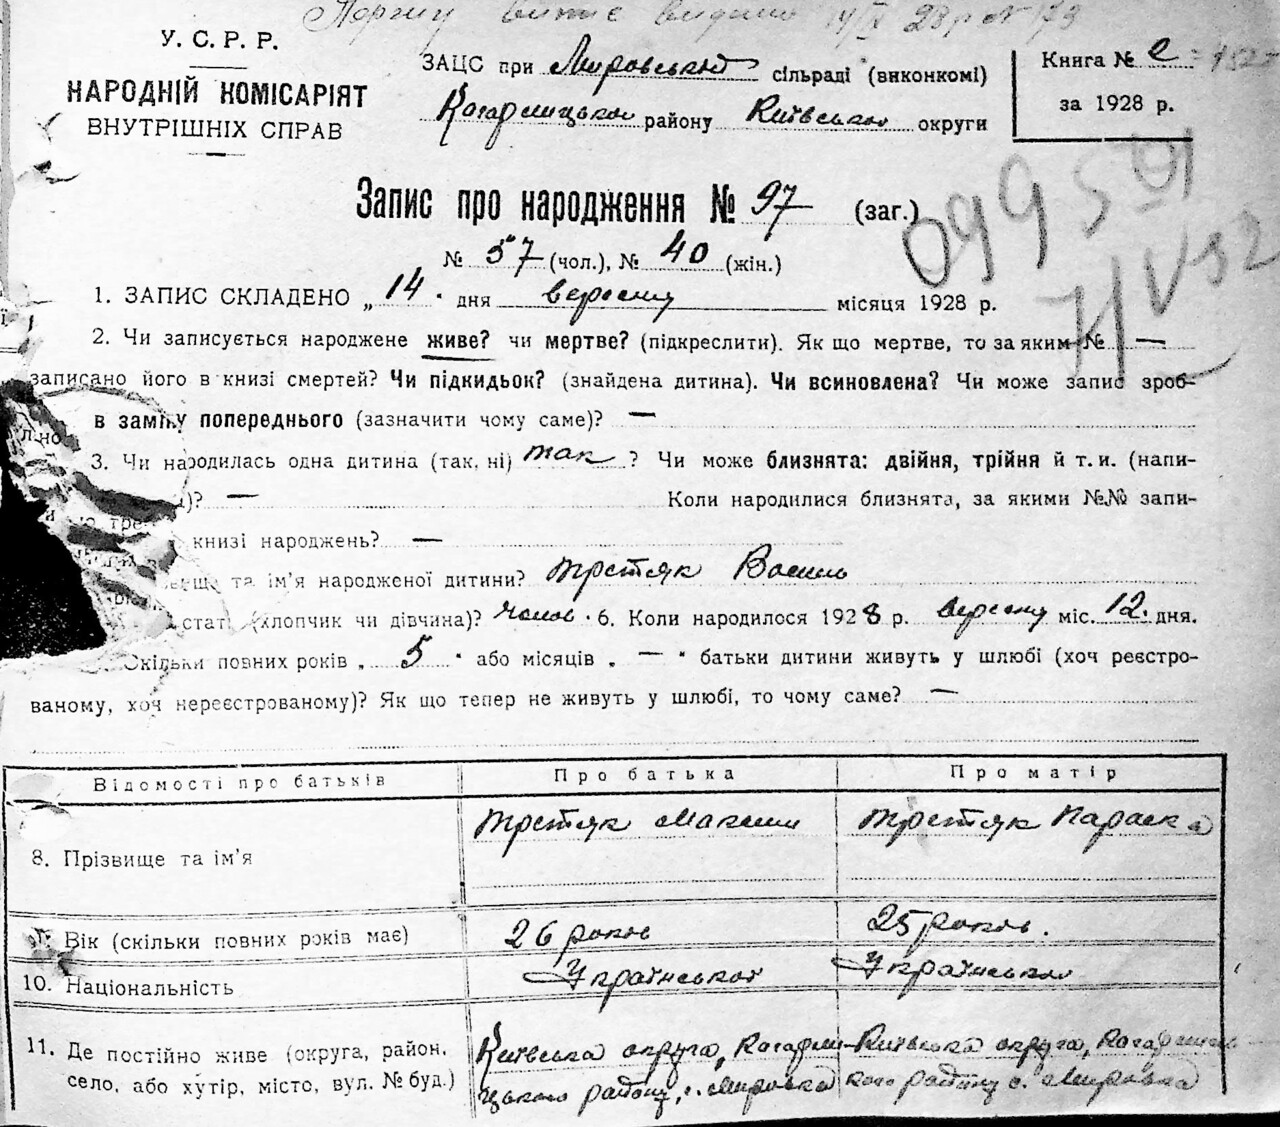 Першу витяг видано 14/IX 28 р № 73
У. С. Р. Р.
НАРОДНІЙ КОМІСАРІЯТ
ВНУТРІШНІХ СПРАВ
ЗАЦС при Мировській сільраді (виконкомі)
Кагарлицького району Київської округи
Книга № 2
за 1928 р.
Запис про народження № 97 (заг.)
№ 57 (чол.), № 40 (жін.)
1. ЗАПИС СКЛАДЕНО „ 14 " дня вересня місяця 1928 р.
2. Чи записується народжене живе? чи мертве? (підкреслити). Як що мертве, то за яким № —
записано його в книзі смертей? Чи підкидьок? (знайдена дитина). Чи всиновлена? Чи може запис зроб-
в заміну попереднього (зазначити чому саме)? —
3. Чи народилась одна дитина (так, ні) так ? Чи може близнята: двійня, трійня й т. и. (напи-
)? — Коли народилися близнята, за якими №№ запи-
книзі народжень? —
та ім'я народженої дитини? Третяк Василь
стать (хлопчик чи дівчина)? чолов. 6. Коли народилося 1928 р. вересня міс. 12. дня.
Скільки повних років „ 5 " або місяців „ — " батьки дитини живуть у шлюбі (хоч реєстро-
ваному, хоч нереєстрованому)? Як що тепер не живуть у шлюбі, то чому саме? —
Відомості про батьків Про батька Про матір
8. Прізвище та ім'я Третяк Максим Третяк Параска
9. Вік (скільки повних років має) 26 років 25 років.
10. Національність Української Української
11. Де постійно живе (округа, район, Київська округа, Кагарли- Київська округа, Кагарлиць-
село, або хутір, місто, вул. № буд.) цького району, с. Мировка кого району с. Мировка